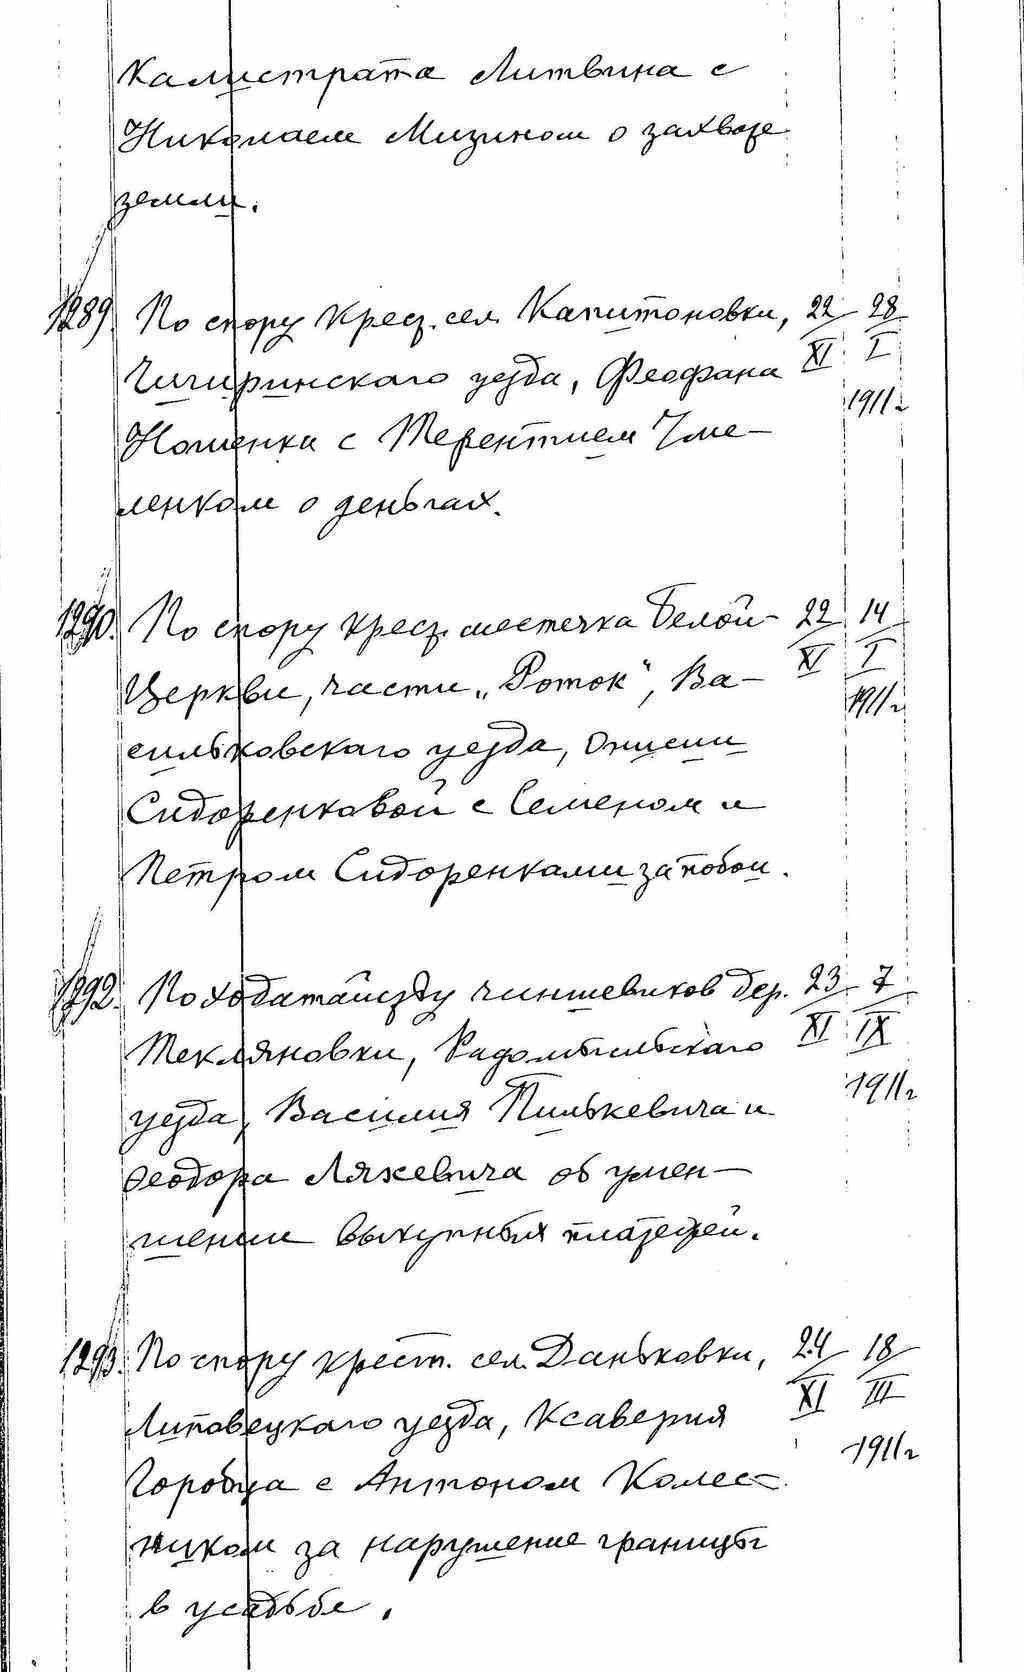 Калистрата Литвина с
Николаем Мизином о захвате
земли.
1289. По спору крест. сел. Капитоновки, 22/XI 28/I 1911г
Чигиринскаго уезда, Феофана
Ношенка с Терентием Гме-
ленком о деньгах.
1290. По спору крест. местечка Белой- 22/XI 14/I 1911г
Церкви, части „Роток", Ва-
сильковскаго уезда, Онисии
Сидоренковой с Семеном и
Петром Сидоренками за побои.
1292. По ходатайству чиншевиков дер. 23/XI 7/IX 1911г
Текляновки, Радомысльскаго
уезда, Василия Пилькевича и
Феодора Ляхевича об умен-
шении выкупных платежей.
1293. По спору крест. сел. Даньковки, 24/XI 18/III 1911г
Липовецкаго уезда, Ксаверия
Горобца с Антоном Колес-
ником за нарушение границы
в усадьбе.